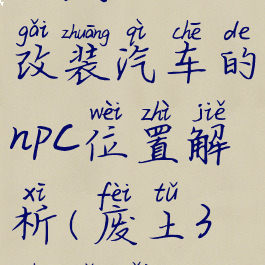 gǎi zhuāng qì chē de
改装汽车的
wèi zhì jiě
npc位置解
xī fèi tǔ
析(废土3